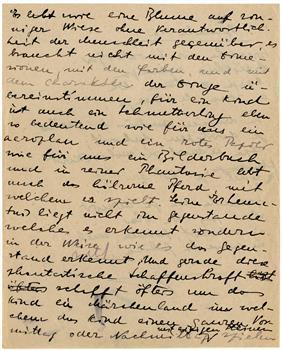 Es lebt wie eine Blume auf son-
niger Wiese ohne Verantwortlich-
keit der Menschheit gegenüber, es
braucht nicht mit den Dime-
sionen, mit den Farben und mit
dem Charakter der Dinge ü-
bereinstimmen, für ein Kind
ist auch ein Schmetterling eben
so bedeutend wie für uns ein
Aeroplan und ein rotes
wie für uns ein Bilderbuch
und in seiner Phantasie lebt
auch das hölzerne Pferd mit
welchem es spielt. Seine
liegt nicht im Gegenstande
welches es erkennt sondern
in der Weise wie es das Gegen-
stand erkennt. Und gerade diese
phantastische Schaffenskraft
schafft öfters um das
Kind ein Märchenland in wel-
chem das Kind einen ganzen Vor-
mittag oder Nachmittag spielen